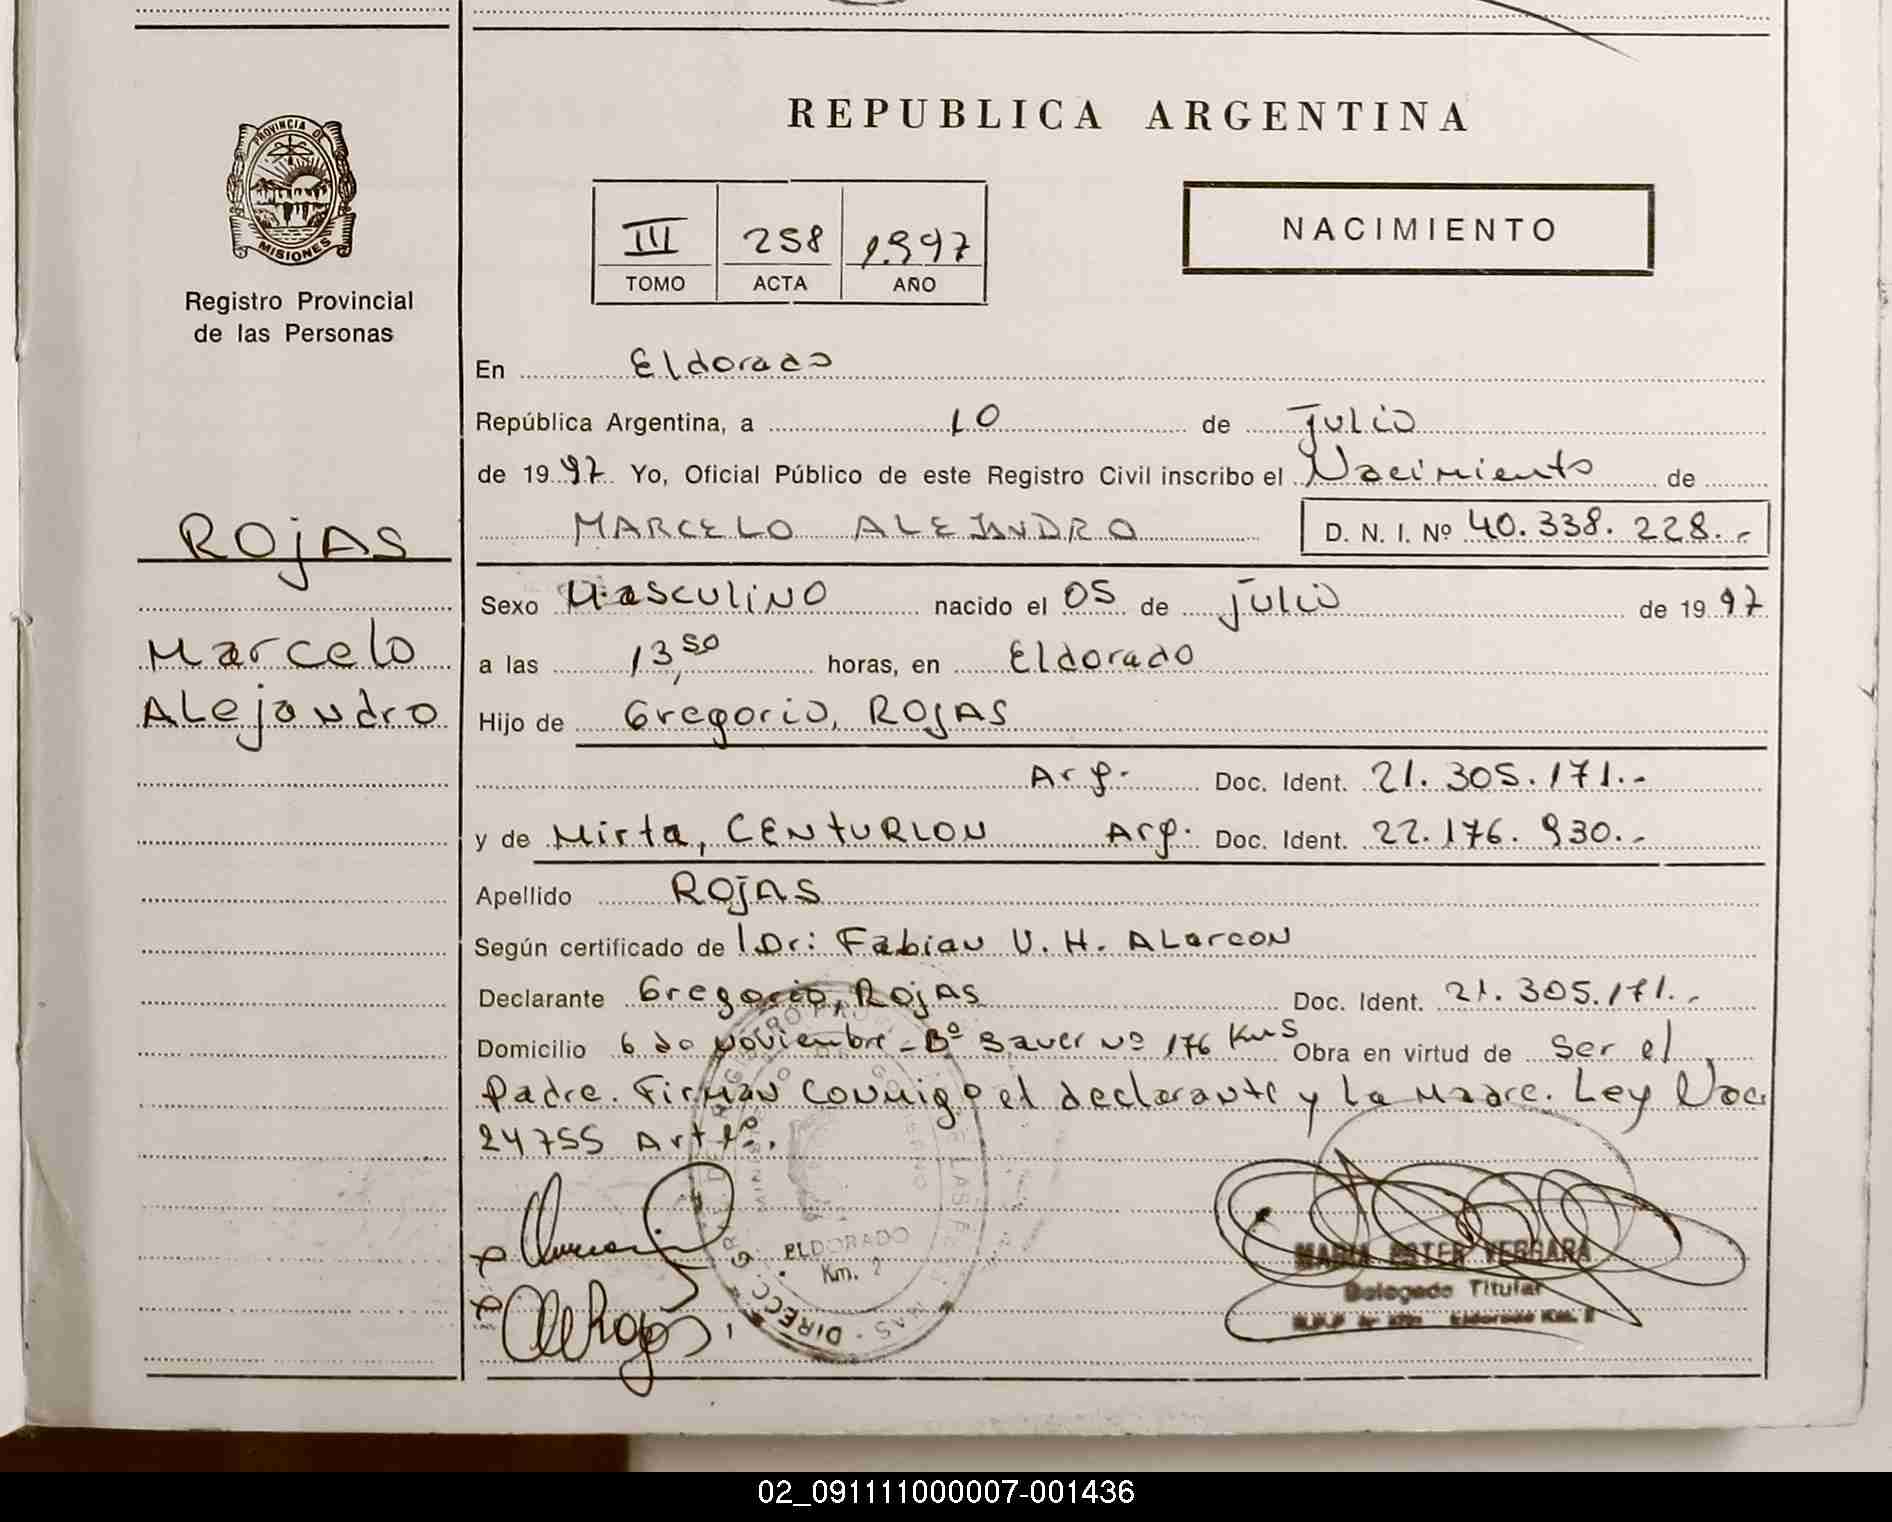 PROVINCIA DE
MISIONES
Registro Provincial
de las Personas
ROjAS
Marcelo
Alejandro
REPUBLICA ARGENTINA
III 258 1.997
TOMO ACTA AÑO
NACIMIENTO
En Eldorado
República Argentina, a 10 de Julio
de 19 97 Yo, Oficial Público de este Registro Civil inscribo el Nacimiento de
MARCELO ALEJANDRO D. N. I. Nº 40.338.228.-
Sexo Masculino nacido el 05 de julio de 19 97
a las 13,50 horas, en Eldorado
Hijo de Gregorio, ROjAS
Arg. Doc. Ident. 21.305.171.-
y de Mirta, CENTURION Arg. Doc. Ident. 22.176.930.-
Apellido ROjAS
Según certificado de Dr: Fabian V. H. ALarcon
Declarante Gregorio, ROjAS Doc. Ident. 21.305.171.-
Domicilio 6 de Noviembre - Bº Sauer Nº 176 Km 5 Obra en virtud de ser el
Padre. Firman conmigo el declarante y la madre. Ley Nac.
24755 Art 1º.
ELDORADO
Km. 2
MARIA ESTER VERGARA
Delegada Titular
Eldorado Km. 2
02_091111000007-001436